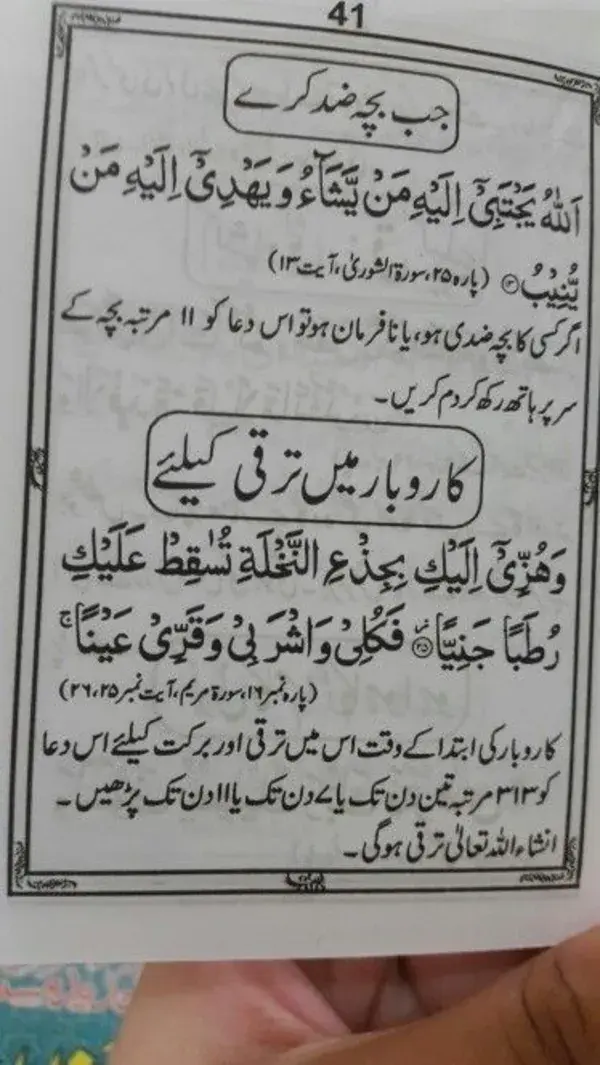 41
جب بچہ ضد کرے
اَللّٰهُ يَجْتَبِیْۤ اِلَيْهِ مَنْ يَّشَآءُ وَ يَهْدِیْۤ اِلَيْهِ مَنْ
يُّنِيْبُ ۝۱۳ (پارہ ۲۵، سورۃ الشوریٰ، آیت ۱۳)
اگر کسی کا بچہ ضدی ہو، یا نافرمان ہو تو اس دعا کو ۱۱ مرتبہ بچہ کے
سر پر ہاتھ رکھ کر دم کریں۔
کاروبار میں ترقی کیلئے
وَهُزِّیْۤ اِلَيْكِ بِجِذْعِ النَّخْلَةِ تُسٰقِطْ عَلَيْكِ
رُطَبًا جَنِيًّا ۝۲۵ فَكُلِیْ وَ اشْرَبِیْ وَ قَرِّیْ عَيْنًا ۚ
(پارہ نمبر ۱۶، سورۃ مریم، آیت نمبر ۲۵، ۲۶)
کاروبار کی ابتدا کے وقت اس میں ترقی اور برکت کیلئے اس دعا
کو ۳۱۳ مرتبہ تین دن تک یا ۷ دن تک یا ۱۱ دن تک پڑھیں۔
انشاء اللہ تعالیٰ ترقی ہوگی۔